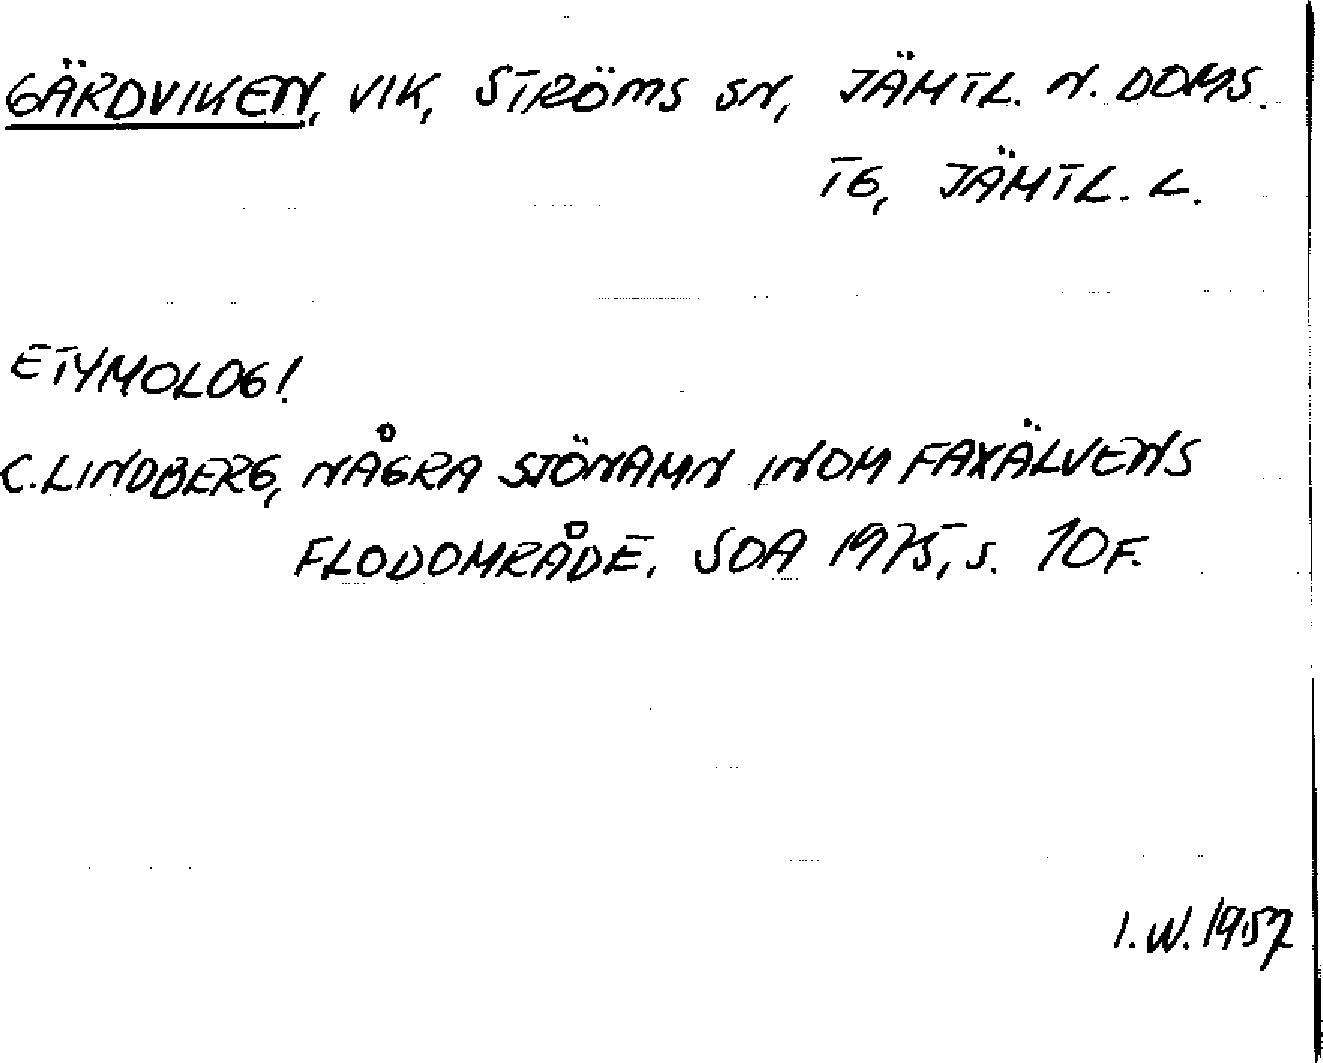 GÄRDVIKEN, VIK, STRÖMS SN, JÄMTL. N. DOMS.
TG, JÄMTL. L.
ETYMOLOGI.
C. LINDBERG, NÅGRA SJÖNAMN INOM FAXÄLVENS
FLODOMRÅDE. SOA 1975, S. 10 F.
I. W. 1957